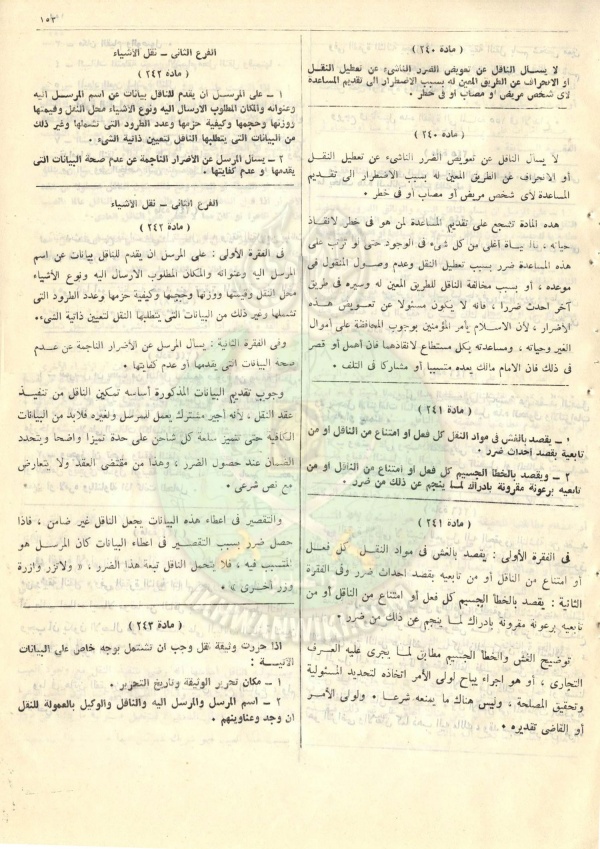 ١٥٣
( مادة ٢٤٠ )
لا يسأل الناقل عن تعويض الضرر الناشىء عن تعطيل النقل
أو الانحراف عن الطريق المعين له بسبب الاضطرار الى تقديم مساعدة
لأى شخص مريض أو مصاب أو فى خطر ٠
( مادة ٢٤٠ )
لا يسأل الناقل عن تعويض الضرر الناشىء عن تعطيل النقل
أو الانحراف عن الطريق المعين له بسبب الاضطرار الى تقديم
المساعدة لأى شخص مريض أو مصاب أو فى خطر ٠
هذه المادة تشجع على تقديم المساعدة لمن هو فى خطر لانقاذ
حياته ، فالحياة أغلى من كل شىء فى الوجود حتى لو ترتب على
هذه المساعدة ضرر بسبب تعطيل النقل وعدم وصول المنقول فى
موعده ، أو بسبب مخالفة الناقل للطريق المعين له وسيره فى طريق
آخر أحدث ضررا ، فانه لا يكون مسئولا عن تعويض هذه
الأضرار ، لأن الاسلام يأمر المؤمنين بوجوب المحافظة على أموال
الغير وحياته ، ومساعدته بكل مستطاع لانقاذهما فان أهمل أو قصر
فى ذلك فان الامام مالك يعده متسببا أو مشاركا فى التلف ٠
( مادة ٢٤١ )
١ ـ يقصد بالغش فى مواد النقل كل فعل أو امتناع من الناقل أو من
تابعيه بقصد احداث ضرر ٠
٢ ـ ويقصد بالخطأ الجسيم كل فعل أو امتناع من الناقل أو من
تابعيه برعونة مقرونة بادراك لما ينجم عن ذلك من ضرر ٠
( مادة ٢٤١ )
فى الفقرة الأولى : يقصد بالغش فى مواد النقل كل فعل
أو امتناع من الناقل أو من تابعيه بقصد احداث ضرر وفى الفقرة
الثانية : يقصد بالخطأ الجسيم كل فعل أو امتناع من الناقل أو من
تابعيه برعونة مقرونة بادراك لما ينجم عن ذلك من ضرر ٠
توضيح الغش والخطأ الجسيم مطابق لما يجرى عليه العرف
التجارى ، أو هو اجراء يباح لولى الأمر اتخاذه لتحديد المسئولية
وتحقيق المصلحة ، وليس هناك ما يمنعه شرعا ٠ ولولى الأمر
أو القاضى تقديره ٠
الفرع الثانى ـ نقل الأشياء
( مادة ٢٤٢ )
١ ـ على المرسل أن يقدم للناقل بيانات عن اسم المرسل اليه
وعنوانه والمكان المطلوب الارسال اليه ونوع الأشياء محل النقل وقيمتها
ووزنها وحجمها وكيفية حزمها وعدد الطرود التى تشملها وغير ذلك
من البيانات التى يتطلبها الناقل لتعيين ذاتية الشىء ٠
٢ ـ يسأل المرسل عن الأضرار الناجمة عن عدم صحة البيانات التى
يقدمها أو عدم كفايتها ٠
الفرع الثانى ـ نقل الأشياء
( مادة ٢٤٢ )
فى الفقرة الأولى : على المرسل أن يقدم للناقل بيانات عن اسم
المرسل اليه وعنوانه والمكان المطلوب الارسال اليه ونوع الأشياء
محل النقل وقيمتها ووزنها وحجمها وكيفية حزمها وعدد الطرود التى
تشملها وغير ذلك من البيانات التى يتطلبها النقل لتعيين ذاتية الشىء ٠
وفى الفقرة الثانية : يسأل المرسل عن الأضرار الناجمة عن عدم
صحة البيانات التى يقدمها أو عدم كفايتها ٠
وجوب تقديم البيانات المذكورة أساسه تمكين الناقل من تنفيذ
عقد النقل ، لأنه أجير مشترك يعمل للمرسل ولغيره فلابد من البيانات
الكافية حتى تتميز سلعة كل شاحن على حدة تميزا واضحا ويتحدد
الضمان عند حصول الضرر ، وهذا من مقتضى العقد ولا يتعارض
مع نص شرعى ٠
والتقصير فى اعطاء هذه البيانات يجعل الناقل غير ضامن ، فاذا
حصل ضرر بسبب التقصير فى اعطاء البيانات كان المرسل هو
المتسبب فيه ، فلا يتحمل الناقل تبعة هذا الضرر ، « ولا تزر وازرة
وزر أخرى » ٠
( مادة ٢٤٣ )
اذا حررت وثيقة نقل وجب أن تشتمل بوجه خاص على البيانات
الآتية :
١ ـ مكان تحرير الوثيقة وتاريخ التحرير ٠
٢ ـ اسم المرسل والمرسل اليه والناقل والوكيل بالعمولة للنقل
ان وجد وعناوينهم ٠
IKHWANWIKI.COM